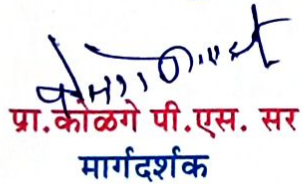 प्रा.कोळगे पी.एस. सर
मार्गदर्शक